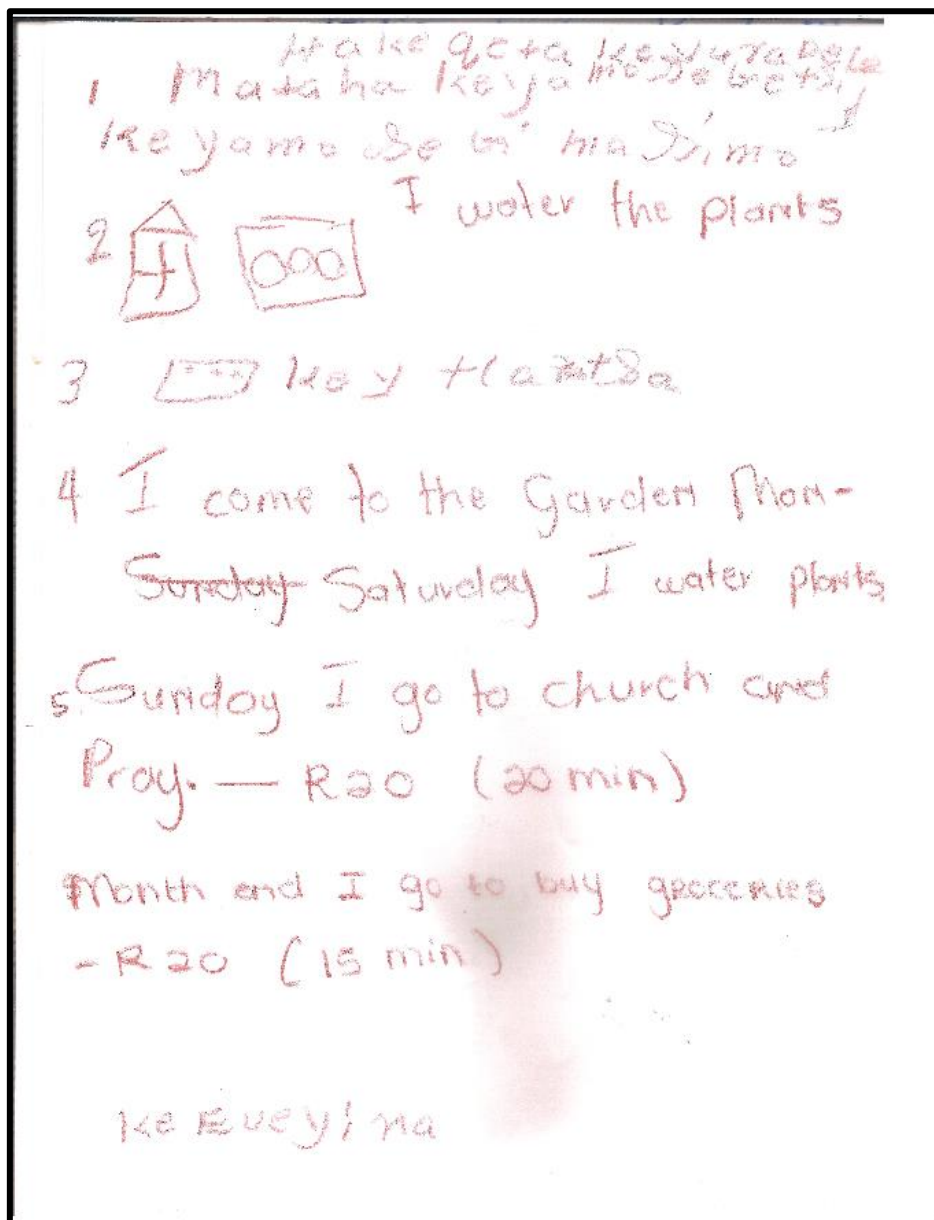 Hake qeta
1 Mataha keya
keyamo
I water the plants
2
3 key tlantsa
4 I come to the Garden Mon-
Sunday Saturday I water plants
5 Sunday I go to church and
Pray. — R20 (20 min)
Month end I go to buy groceries
- R20 (15 min)
ke Eveyina